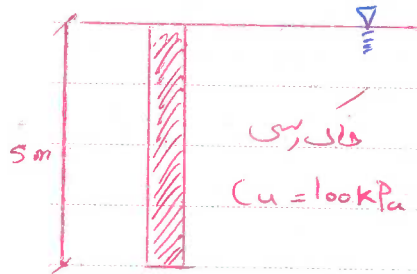 5m
خاک رسی
Cu = 100 kPa